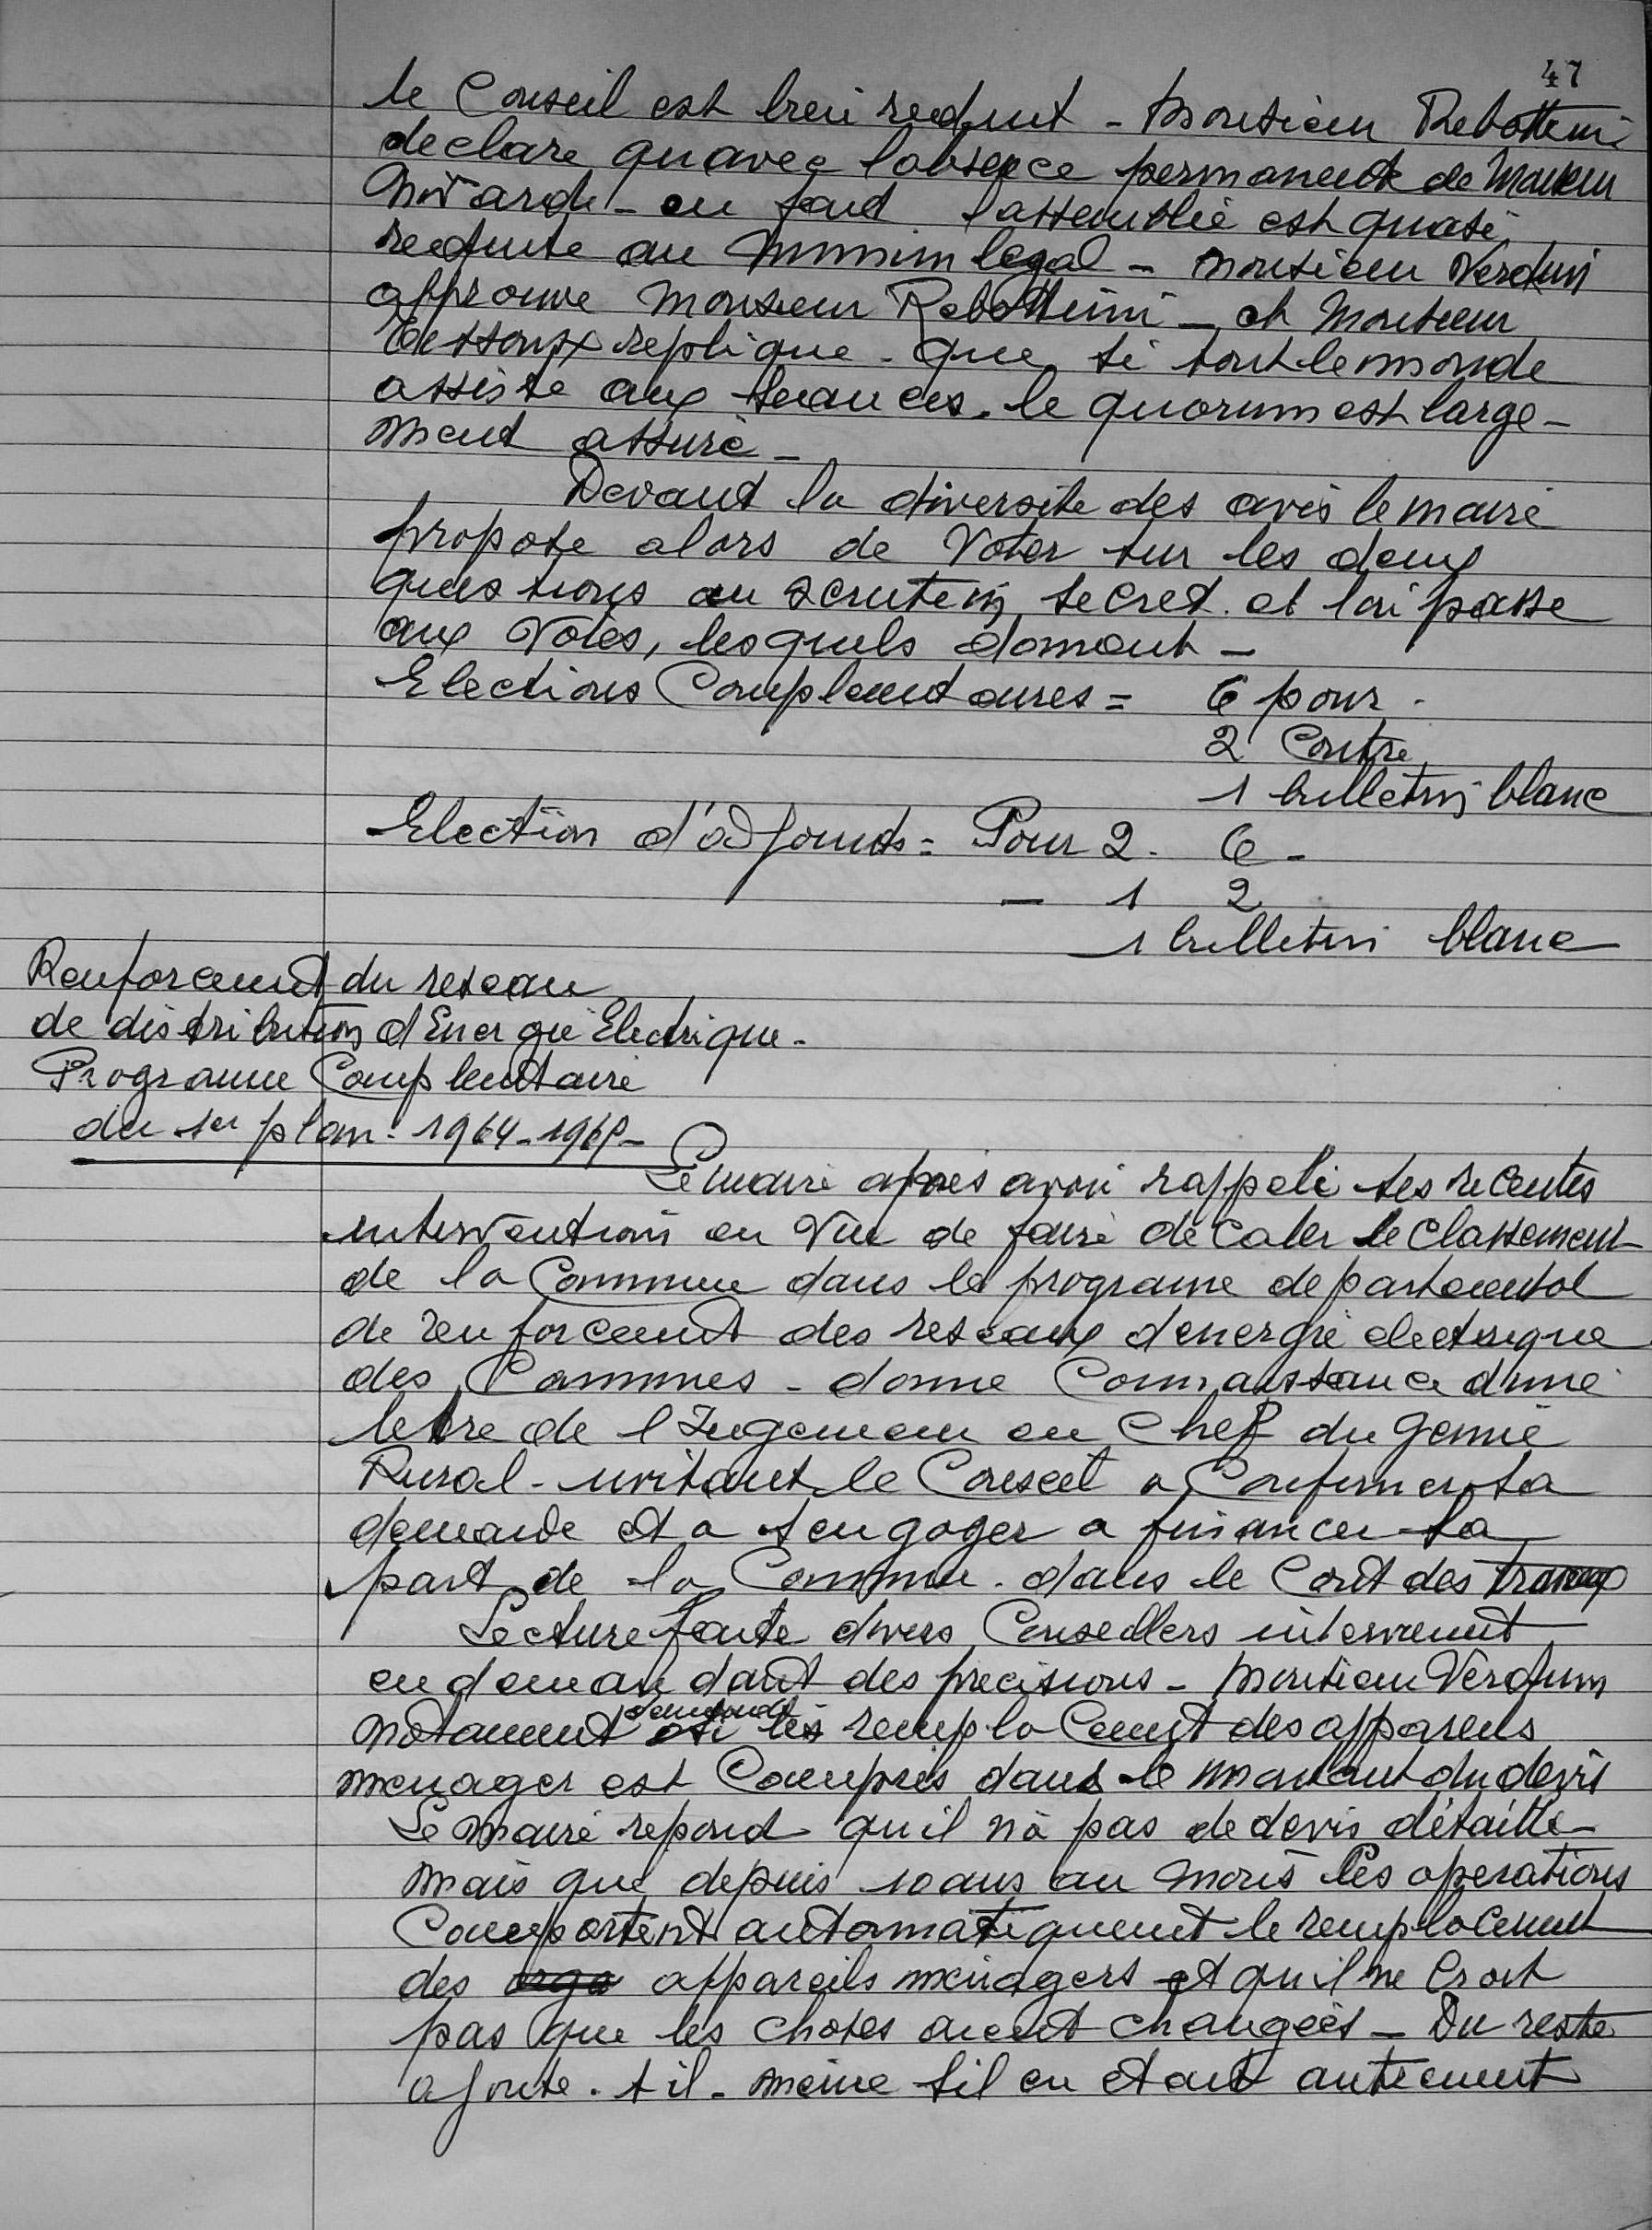 47
le Conseil est bien reduit - Monsieur Rebottini
declare qu avec l absence permanente de Monsieur
en fait l assemblée est quasi
reduite au minimin legal - Monsieur Verdun
approuve Monsieur Rebottini - et Monsieur
Tessoux replique - que si tout le monde
assiste aux seances. le quorum est large-
ment assuré -
Devant la diversite des avis le maire
propose alors de Voter sur les deux
questions au scrutin secret. et l on passe
aux Votes, lesquels donnent -
Elections Complementaires = 6 pour -
2 Contre
1 bulletin blanc
Election d'adjoints = Pour 2 - 6 -
- 1 2
1 bulletin blanc
Renforcement du reseau
de distribution d Energie Electrique -
Programme Complementaire
du 1er plan - 1964 -
Le maire apres avoir rappelé ses recentes
interventions en Vue de faire décaler le Classement
de la Commune dans le programme departemental
de renforcement des reseaux d energie electrique
des Communes - donne Connaissance d une
lettre de l Ingenieur en Chef du Genie
Rural - invitant le Conseil a Confirmer sa
demande et a s engager a financer la
part de la Commune - dans le Cout des travaux
Lecture faite divers Conseillers interviennent
en demandant des precisions - Monsieur Verdun
notamment demande si les remplacement des appareils
menager est Compris dans le montant du devis
Le Maire repond qu il n a pas de devis détaillé -
mais que depuis 10 ans au moins les operations
Comportent automatiquement le remplacement
des appareils ménagers et qu il ne Croit
pas que les choses aient changées - Du reste
ajoute - t il - même s il en etait autrement